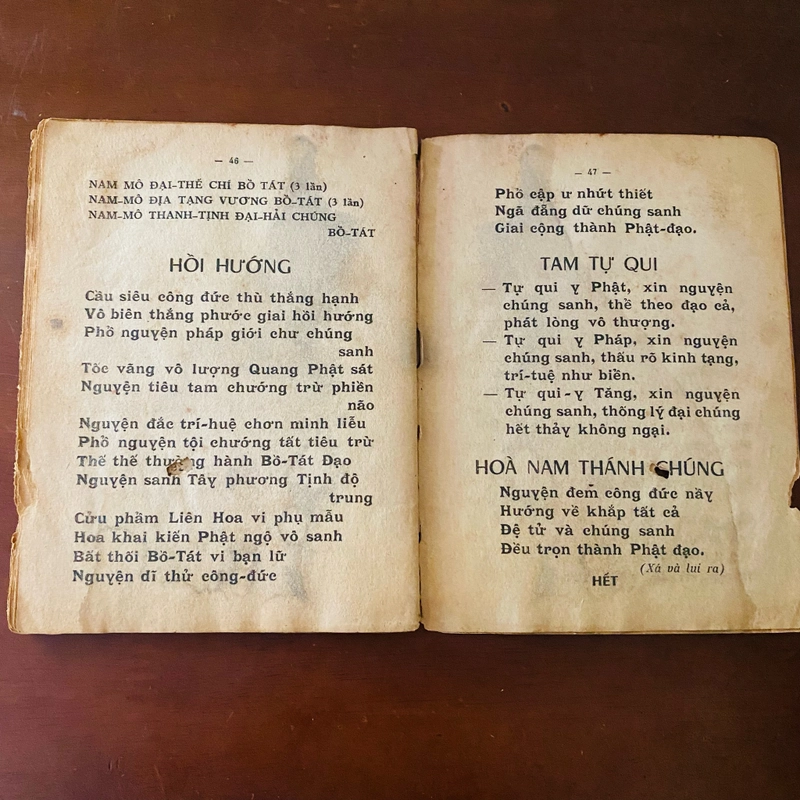 — 46 —
NAM MÔ ĐẠI-THẾ CHÍ BỒ TÁT (3 lần)
NAM-MÔ ĐỊA TẠNG VƯƠNG BỒ-TÁT (3 lần)
NAM-MÔ THANH-TỊNH ĐẠI-HẢI CHÚNG
BỒ-TÁT
HỒI HƯỚNG
Cầu siêu công đức thù thắng hạnh
Vô biên thắng phước giai hồi hướng
Phổ nguyện pháp giới chư chúng
sanh
Tốc vãng vô lượng Quang Phật sát
Nguyện tiêu tam chướng trừ phiền
não
Nguyện đắc trí-huệ chơn minh liễu
Phổ nguyện tội chướng tất tiêu trừ
Thế thế thường hành Bồ-Tát Đạo
Nguyện sanh Tây phương Tịnh độ
trung
Cửu phẩm Liên Hoa vi phụ mẫu
Hoa khai kiến Phật ngộ vô sanh
Bất thối Bồ-Tát vi bạn lữ
Nguyện dĩ thử công-đức
— 47 —
Phổ cập ư nhứt thiết
Ngã đẳng dữ chúng sanh
Giai cộng thành Phật-đạo.
TAM TỰ QUI
— Tự qui y Phật, xin nguyện
chúng sanh, thể theo đạo cả,
phát lòng vô thượng.
— Tự qui y Pháp, xin nguyện
chúng sanh, thấu rõ kinh tạng,
trí-tuệ như biển.
— Tự qui-y Tăng, xin nguyện
chúng sanh, thống lý đại chúng
hết thảy không ngại.
HOÀ NAM THÁNH CHÚNG
Nguyện đem công đức nầy
Hướng về khắp tất cả
Đệ tử và chúng sanh
Đều trọn thành Phật đạo.
(Xá và lui ra)
HẾT